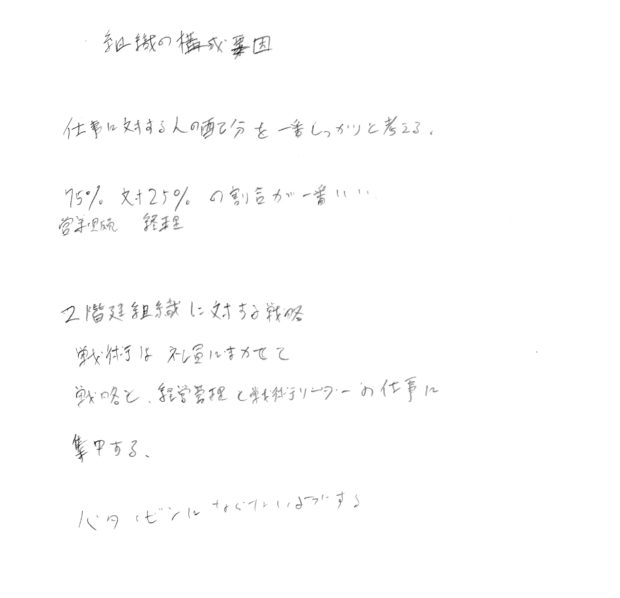 組織の構成要因
仕事に対する人の配分を一番しっかりと考える。
75% 対25% の割合が一番いい..
営業 経理
2階建組織に対する戦略
戦術は社員にまかせて
戦略と、経営管理と戦術リーダーの仕事に
集中する。
にならないようにする